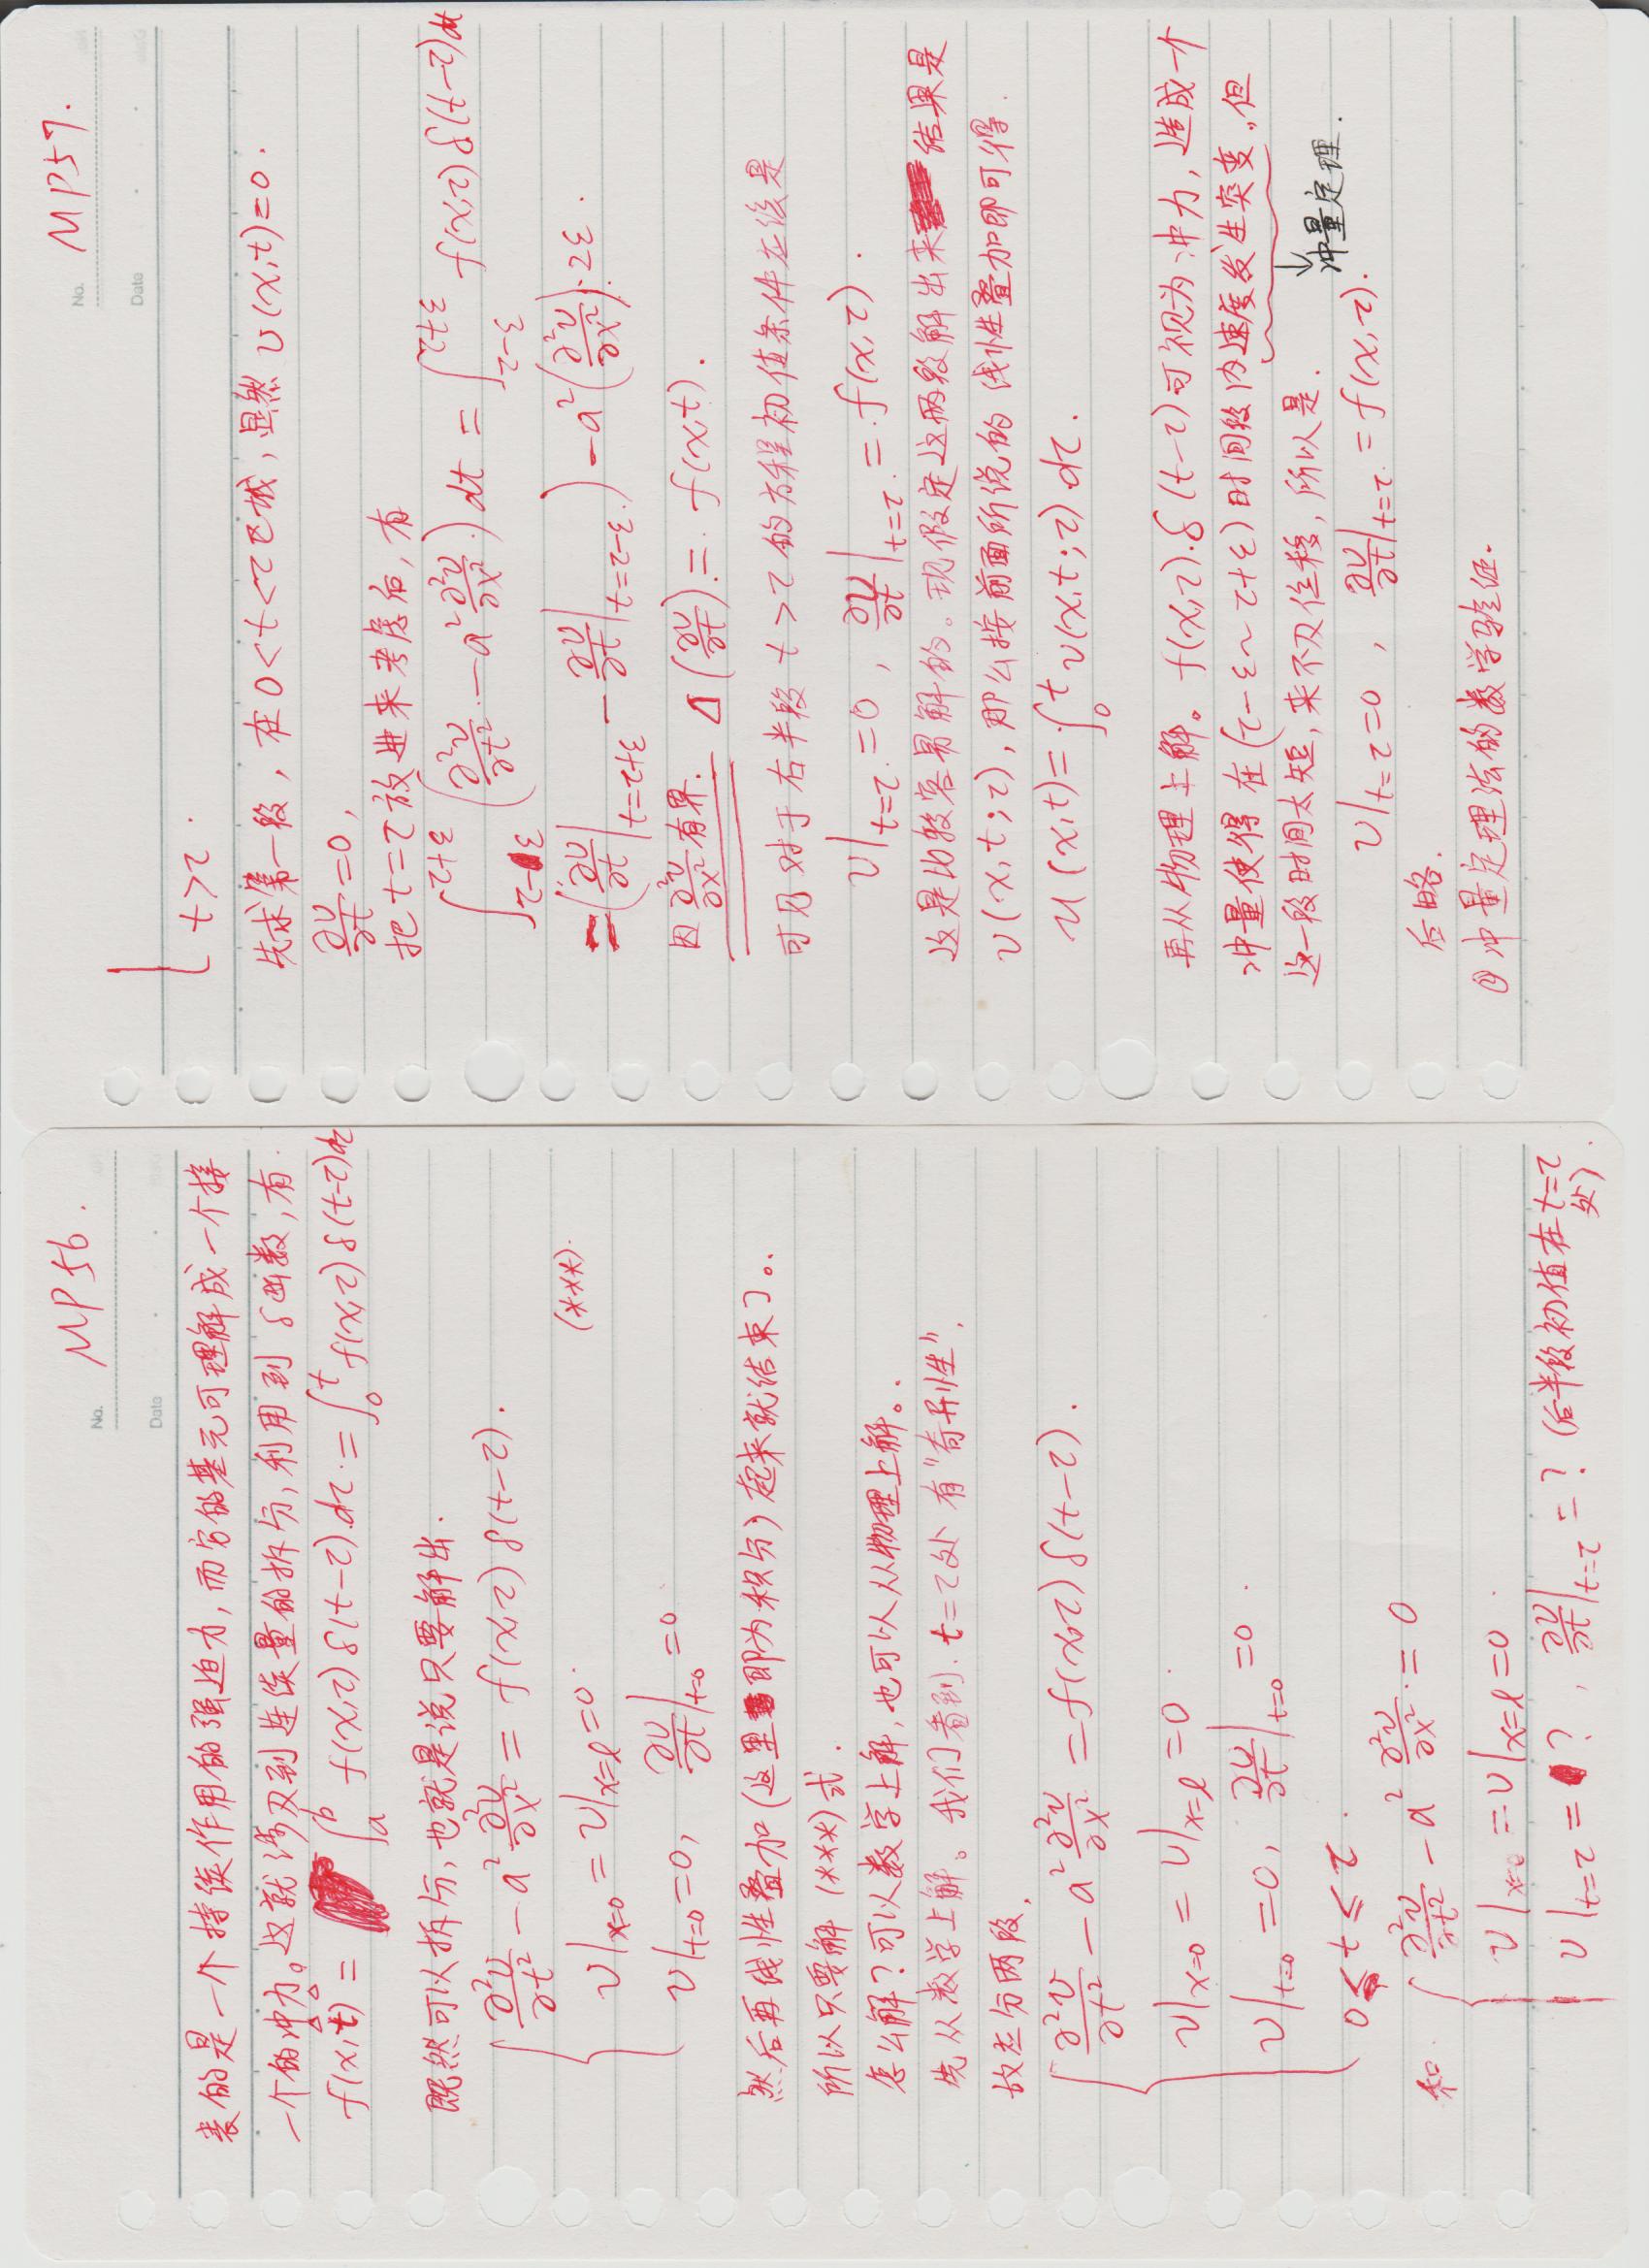 No. MP56.
Date
表的是一个持续作用的强迫力,而它的基元可理解成一个接
一个的冲力。这就涉及到连续量的拆分,利用到 δ函数,有
f(x,t) = ∫_a^b f(x,τ) δ(t-τ) dτ = ∫_0^t f(x,τ) δ(t-τ) dτ
既然可以拆分,也就是说只要解出.
∂²v/∂t² - a² ∂²v/∂x² = f(x,τ) δ(t-τ).
v|x=0 = v|x=l = 0 (***).
v|t=0 = 0, ∂v/∂t|t=0 = 0
然后再线性叠加(这里即为积分)起来就结束了。
所以只要解 (***) 式.
怎么解?可以数学上解,也可以从物理上解。
先从数学上解。我们看到 t=τ处 有“奇异性”,
故应分两段,
∂²v/∂t² - a² ∂²v/∂x² = f(x,τ) δ(t-τ).
v|x=0 = v|x=l = 0
v|t=0 = 0, ∂v/∂t|t=0 = 0.
0 ≤ t ≤ τ.
和 ∂²v/∂t² - a² ∂²v/∂x² = 0
v|x=0 = v|x=l = 0
v|t=τ = ?, ∂v/∂t|t=τ = ? (后半段初值在 t=τ
处).
No. MP57.
Date
t>τ.
先求第一段, 在 0<t<τ区域, 显然 v(x,t)=0.
∂v/∂t = 0,
把 t=τ 放进来考虑后, 有
∫_{τ-ε}^{τ+ε} (∂²v/∂t² - a² ∂²v/∂x²) dt = ∫_{τ-ε}^{τ+ε} f(x,τ) δ(t-τ) dt
= (∂v/∂t|t=τ+ε - ∂v/∂t|t=τ-ε) - a² (∂²v/∂x²)·2ε.
因 ∂²v/∂x² 有界. Δ(∂v/∂t) = f(x,t).
可见对于右半段 t>τ 的方程初值条件应该是
v|t=τ = 0, ∂v/∂t|t=τ = f(x,τ).
这是比较容易解的。现假定这两段解出来 结果是
v(x,t;τ), 那么按前面所说的 线性叠加即可得
u(x,t) = ∫_0^t v(x,t;τ) dτ.
再从物理上解。f(x,τ)·δ(t-τ)可视为冲力, 造成一个
冲量使得 在(τ-ε~τ+ε)时间段内速度发生突变,但
这一段时间太短, 来不及位移, 所以是.
冲量定理.
v|t=τ = 0, ∂v/∂t|t=τ = f(x,τ).
后略.
② 冲量定理法的数学验证.